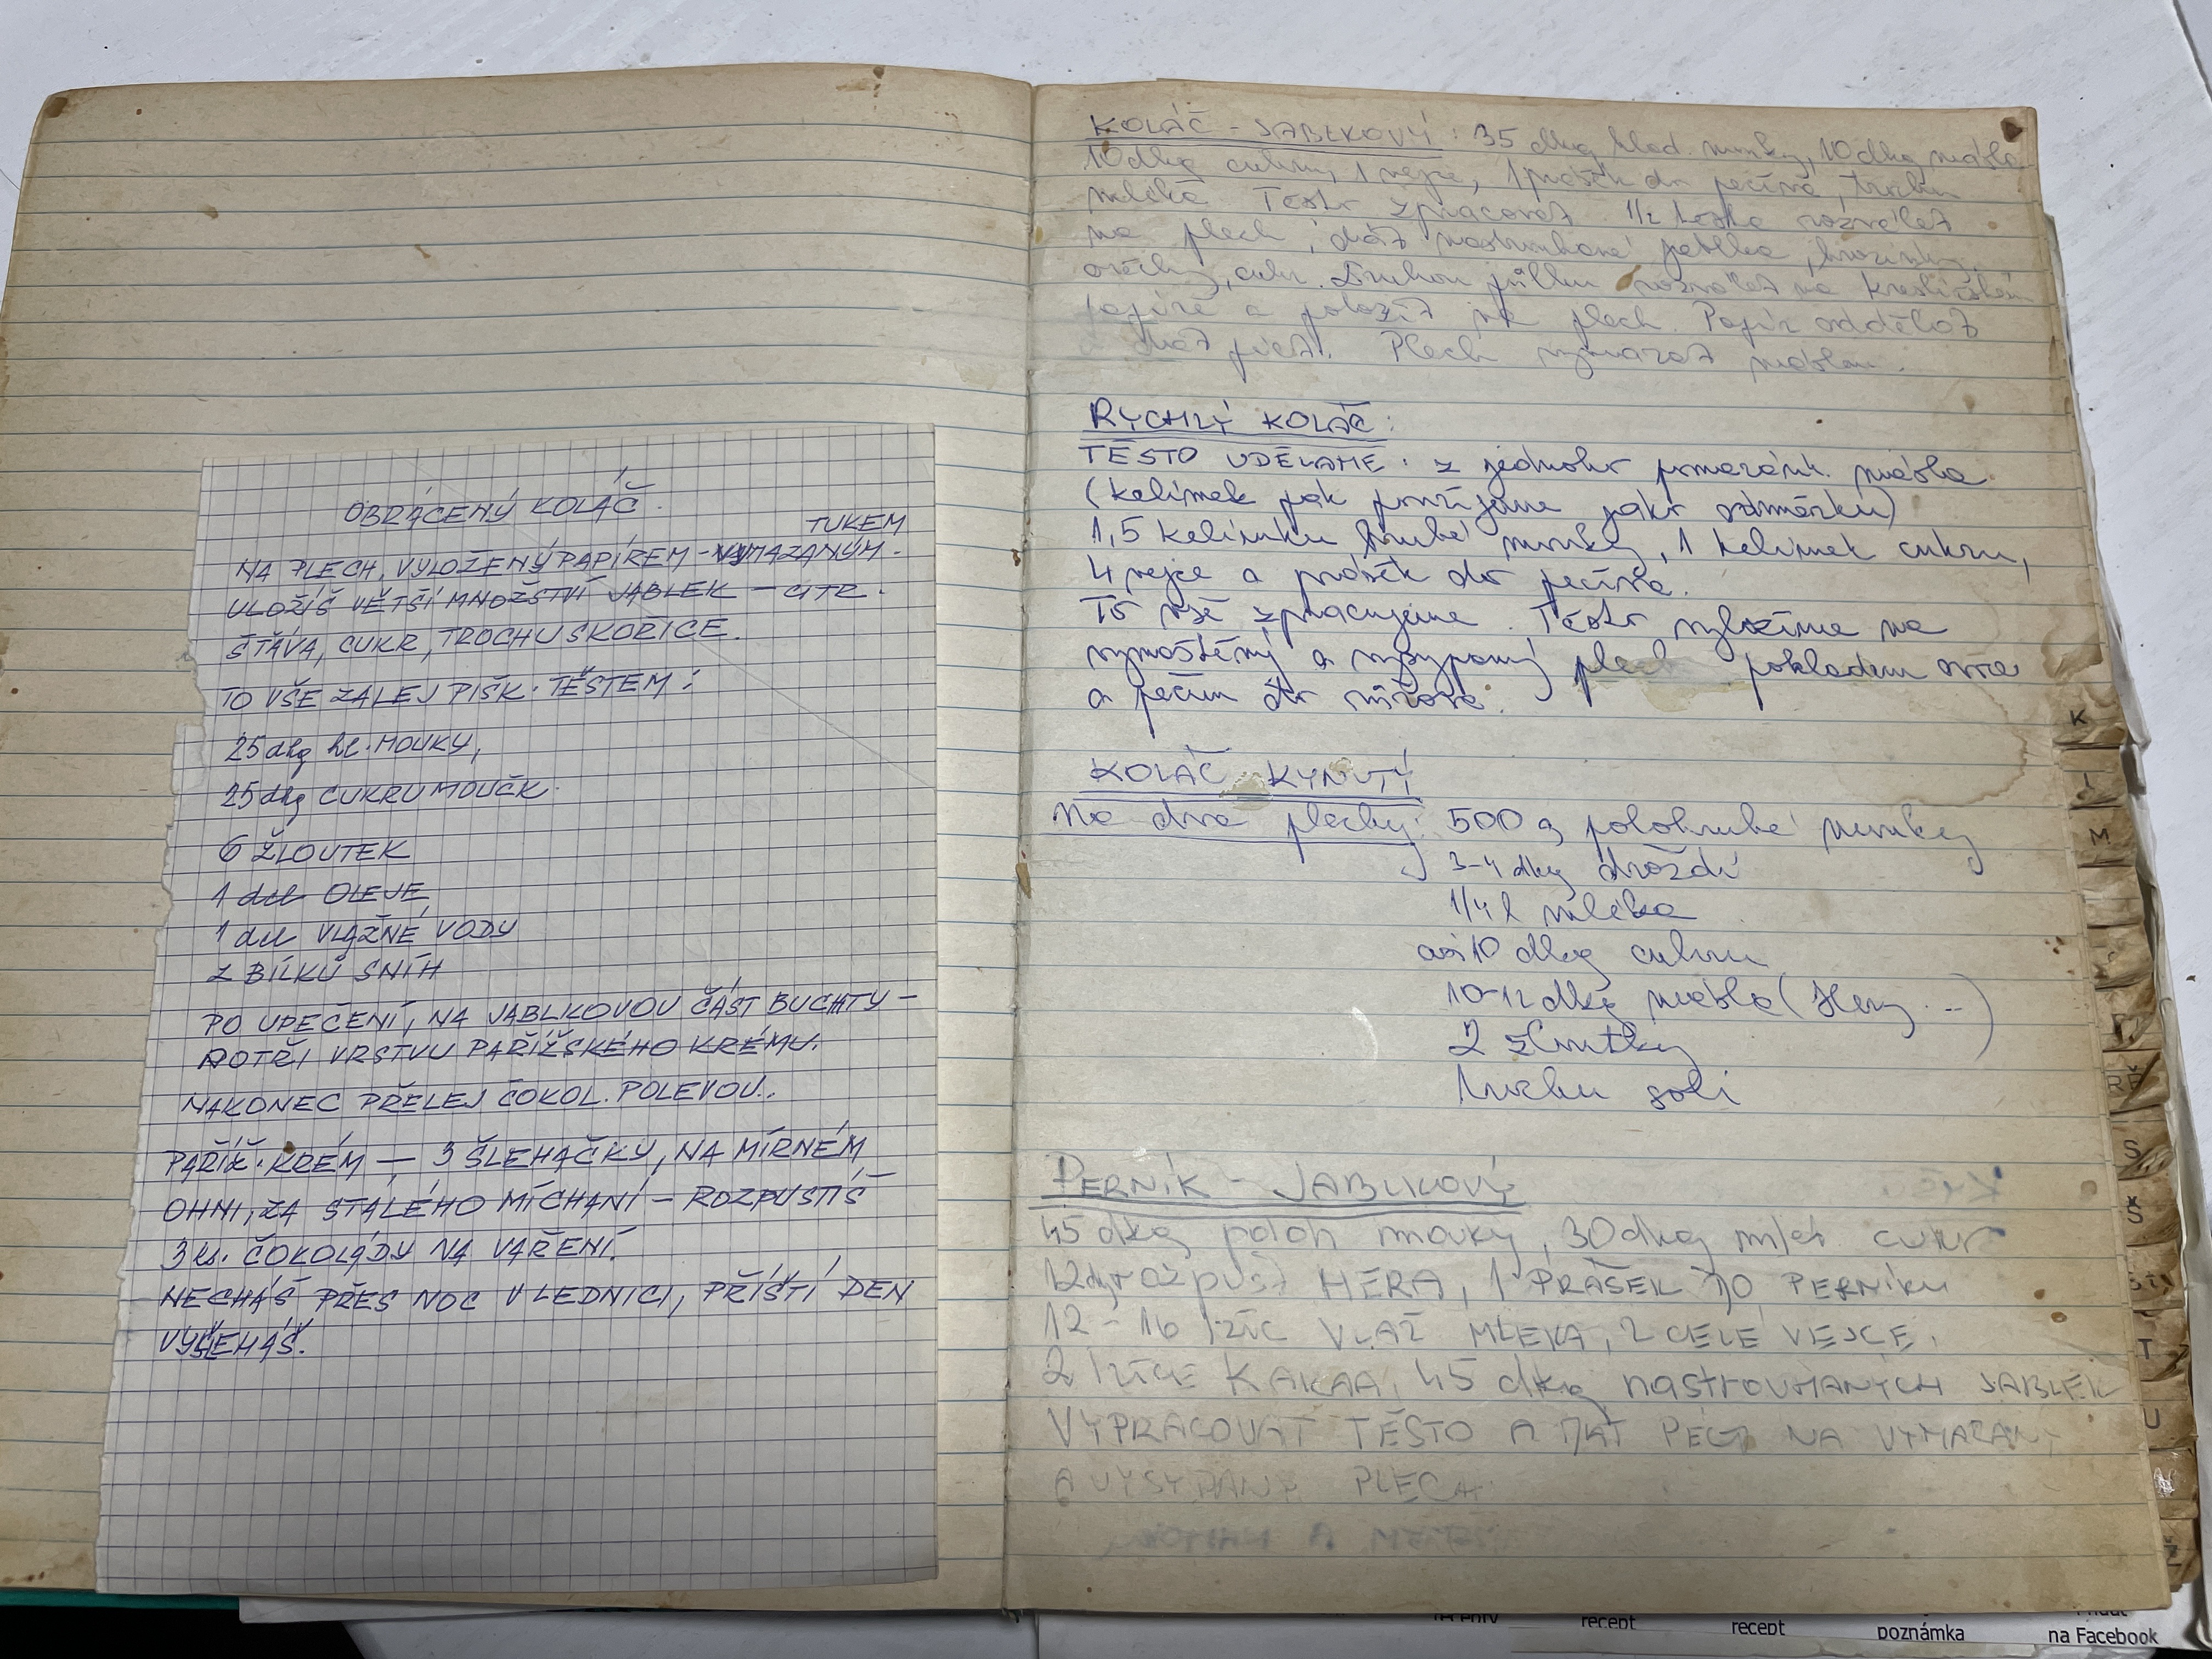 OBRÁCENÝ KOLÁČ.
TUKEM
NA PLECH, VYLOŽENÝ PAPÍREM - VYMAZANÝM.
ULOŽÍŠ VĚTŠÍ MNOŽSTVÍ JABLEK - CITR.
ŠŤÁVA, CUKR, TROCHU SKOŘICE.
TO VŠE ZALEJ PIŠK. TĚSTEM:
25 dkg HL. MOUKY,
25 dkg CUKRU MOUČK.
6 ŽLOUTEK
1 dcl OLEJE
1 dcl VLAŽNÉ VODY
z BÍLKŮ SNÍH
PO UPEČENÍ, NA JABLKOVOU ČÁST BUCHTY -
POTŘI VRSTVU PAŘÍŽSKÉHO KRÉMU.
NAKONEC PŘELEJ ČOKOL. POLEVOU.
PAŘÍŽ. KRÉM - 3 ŠLEHAČKY, NA MÍRNÉM
OHNI, ZA STÁLÉHO MÍCHÁNÍ - ROZPUSTÍŠ -
3 ks. ČOKOLÁDY NA VAŘENÍ.
NECHÁŠ PŘES NOC V LEDNICI, PŘÍŠTÍ DEN
VYŠLEHÁŠ.
KOLÁČ - JABLKOVÝ: 35 dkg hlad. mouky, 10 dkg másla
10 dkg cukru, 1 vejce, 1 prášek do pečiva, trochu
mléka Těsto zpracovat. 1/2 těsta rozválet
na plech, dát nastrouhané jablka, hrozinky
ořechy, cukr. Druhou půlku rozválet na
papíře a položit na plech. Papír oddělat
dát péct. Plech vymazat máslem.
RYCHLÝ KOLÁČ:
TĚSTO UDĚLÁME: z jednoho pomazánk. másla
(kelímek pak použijeme jako odměrku)
1,5 kelímku hrubé mouky, 1 kelímek cukru,
4 vejce a prášek do pečiva.
To vše zpracujeme. Těsto vylijeme na
vymaštěný a vysypaný plech pokladem ovoce
a pečem do růžova.
KOLÁČ KYNUTÝ
Na dva plechy: 500 g polohrubé mouky
3-4 dkg droždí
1/4 l mléka
asi 10 dkg cukru
10-12 dkg másla (Hery..)
2 žloutky
trochu soli
PERNÍK - JABLKOVÝ
45 dkg poloh mouky, 30 dkg mlch cukr
12 dkg rozpušt HERA, 1 PRÁŠEK DO PERNÍKU
12 - 16 lžic VLAŽ MLÉKA, 2 CELÉ VEJCE,
2 lžíce KAKAA, 45 dkg nastrouhaných JABLEK
VYPRACOVAT TĚSTO A DÁT PÉCT NA VYMAZANÝ
A VYSYPANÝ PLECH.
K
L
M
Ř
S
Š
T
U
Ž
recept
recept
poznámka
na Facebook